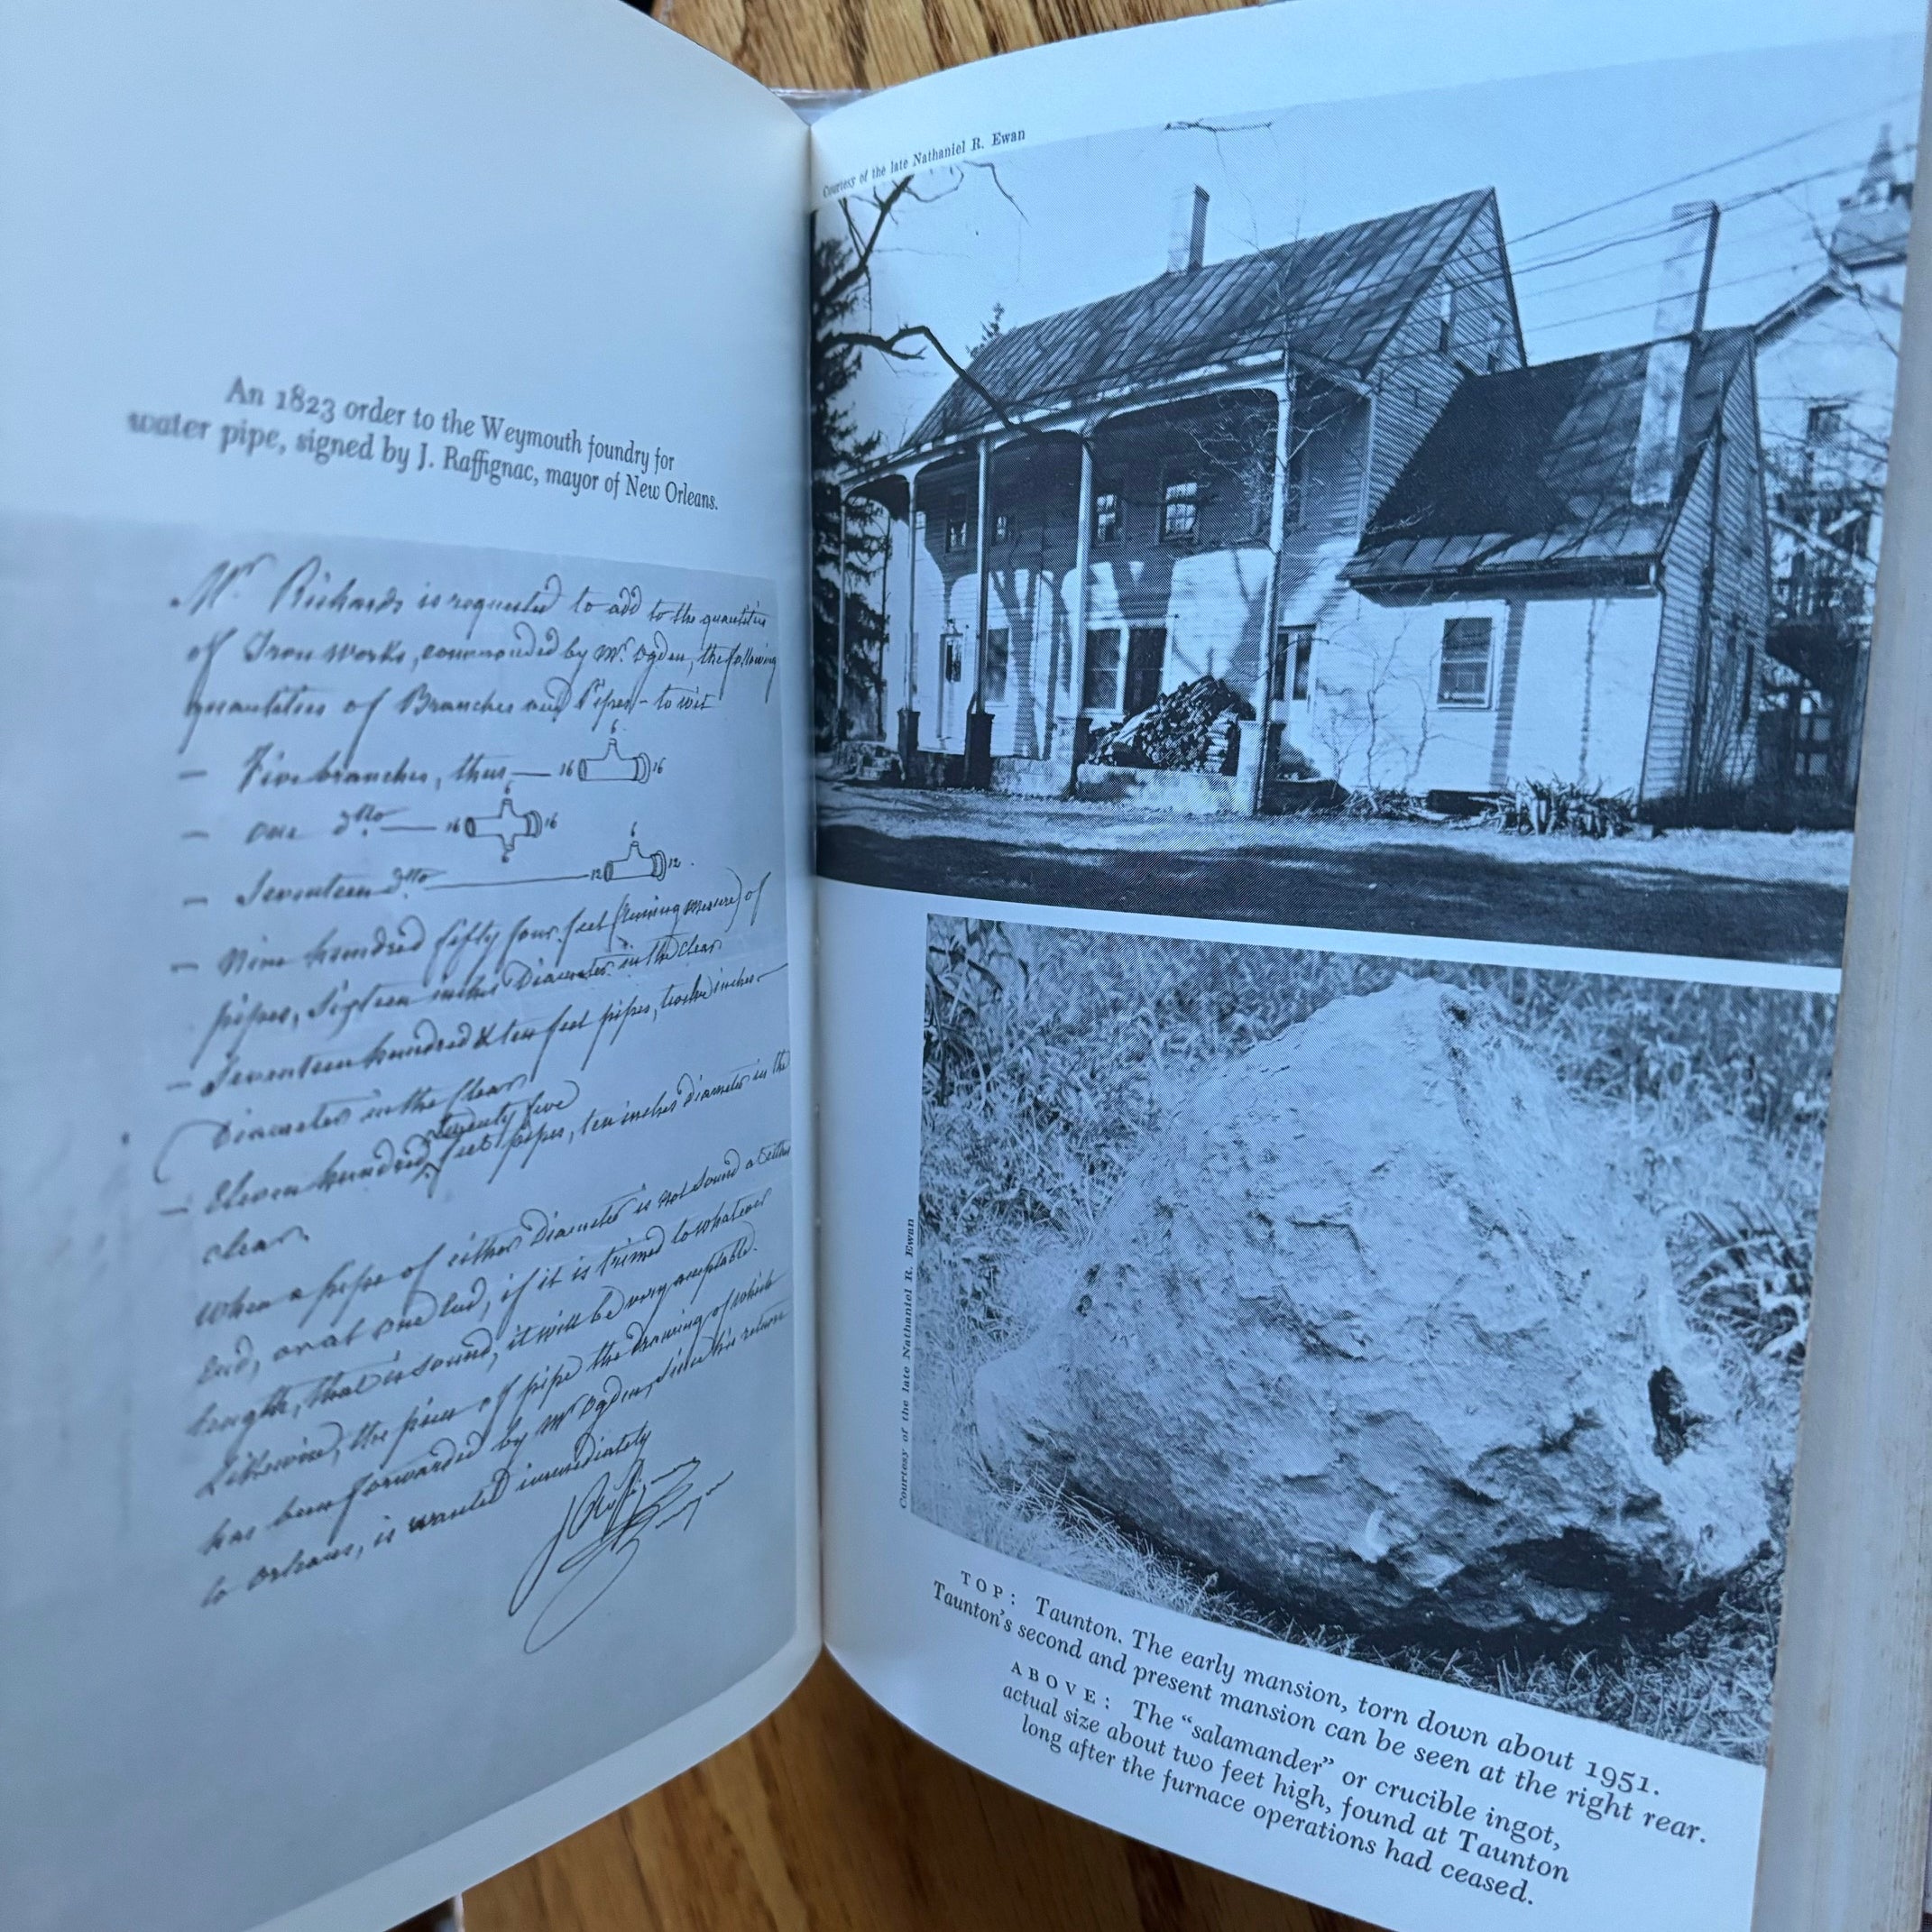 An 1823 order to the Weymouth foundry for
water pipe, signed by J. Raffignac, mayor of New Orleans.
Mr Richards is requested to add to the quantities
of Iron works, commanded by Mr. Ogden, the following
quantities of Branches and Pipes - to wit
- Five branches, thus — 16 6 16
- one do — 16 6 6 16
- Seventeen do — 12 6 12.
- Nine hundred fifty four feet (running measure) of
pipes, Sixteen inches Diameter in the clear
- Seventeen hundred & ten feet pipes, twelve inches
Diameter in the clear
twenty five
- Eleven hundred feet pipes, ten inches diameter in the
clear.
When a pipe of either Diameter is not sound at either
End, or at one End, if it is trimed to whatever
length, that is sound, it will be very acceptable.
Likewise, the piece of pipe the drawing of which
has been forwarded by Mr Ogden, since his return
to orleans, is wanted immediately
Courtesy of the late Nathaniel R. Ewan
Courtesy of the late Nathaniel R. Ewan
TOP: Taunton. The early mansion, torn down about 1951.
Taunton's second and present mansion can be seen at the right rear.
ABOVE: The “salamander” or crucible ingot,
actual size about two feet high, found at Taunton
long after the furnace operations had ceased.